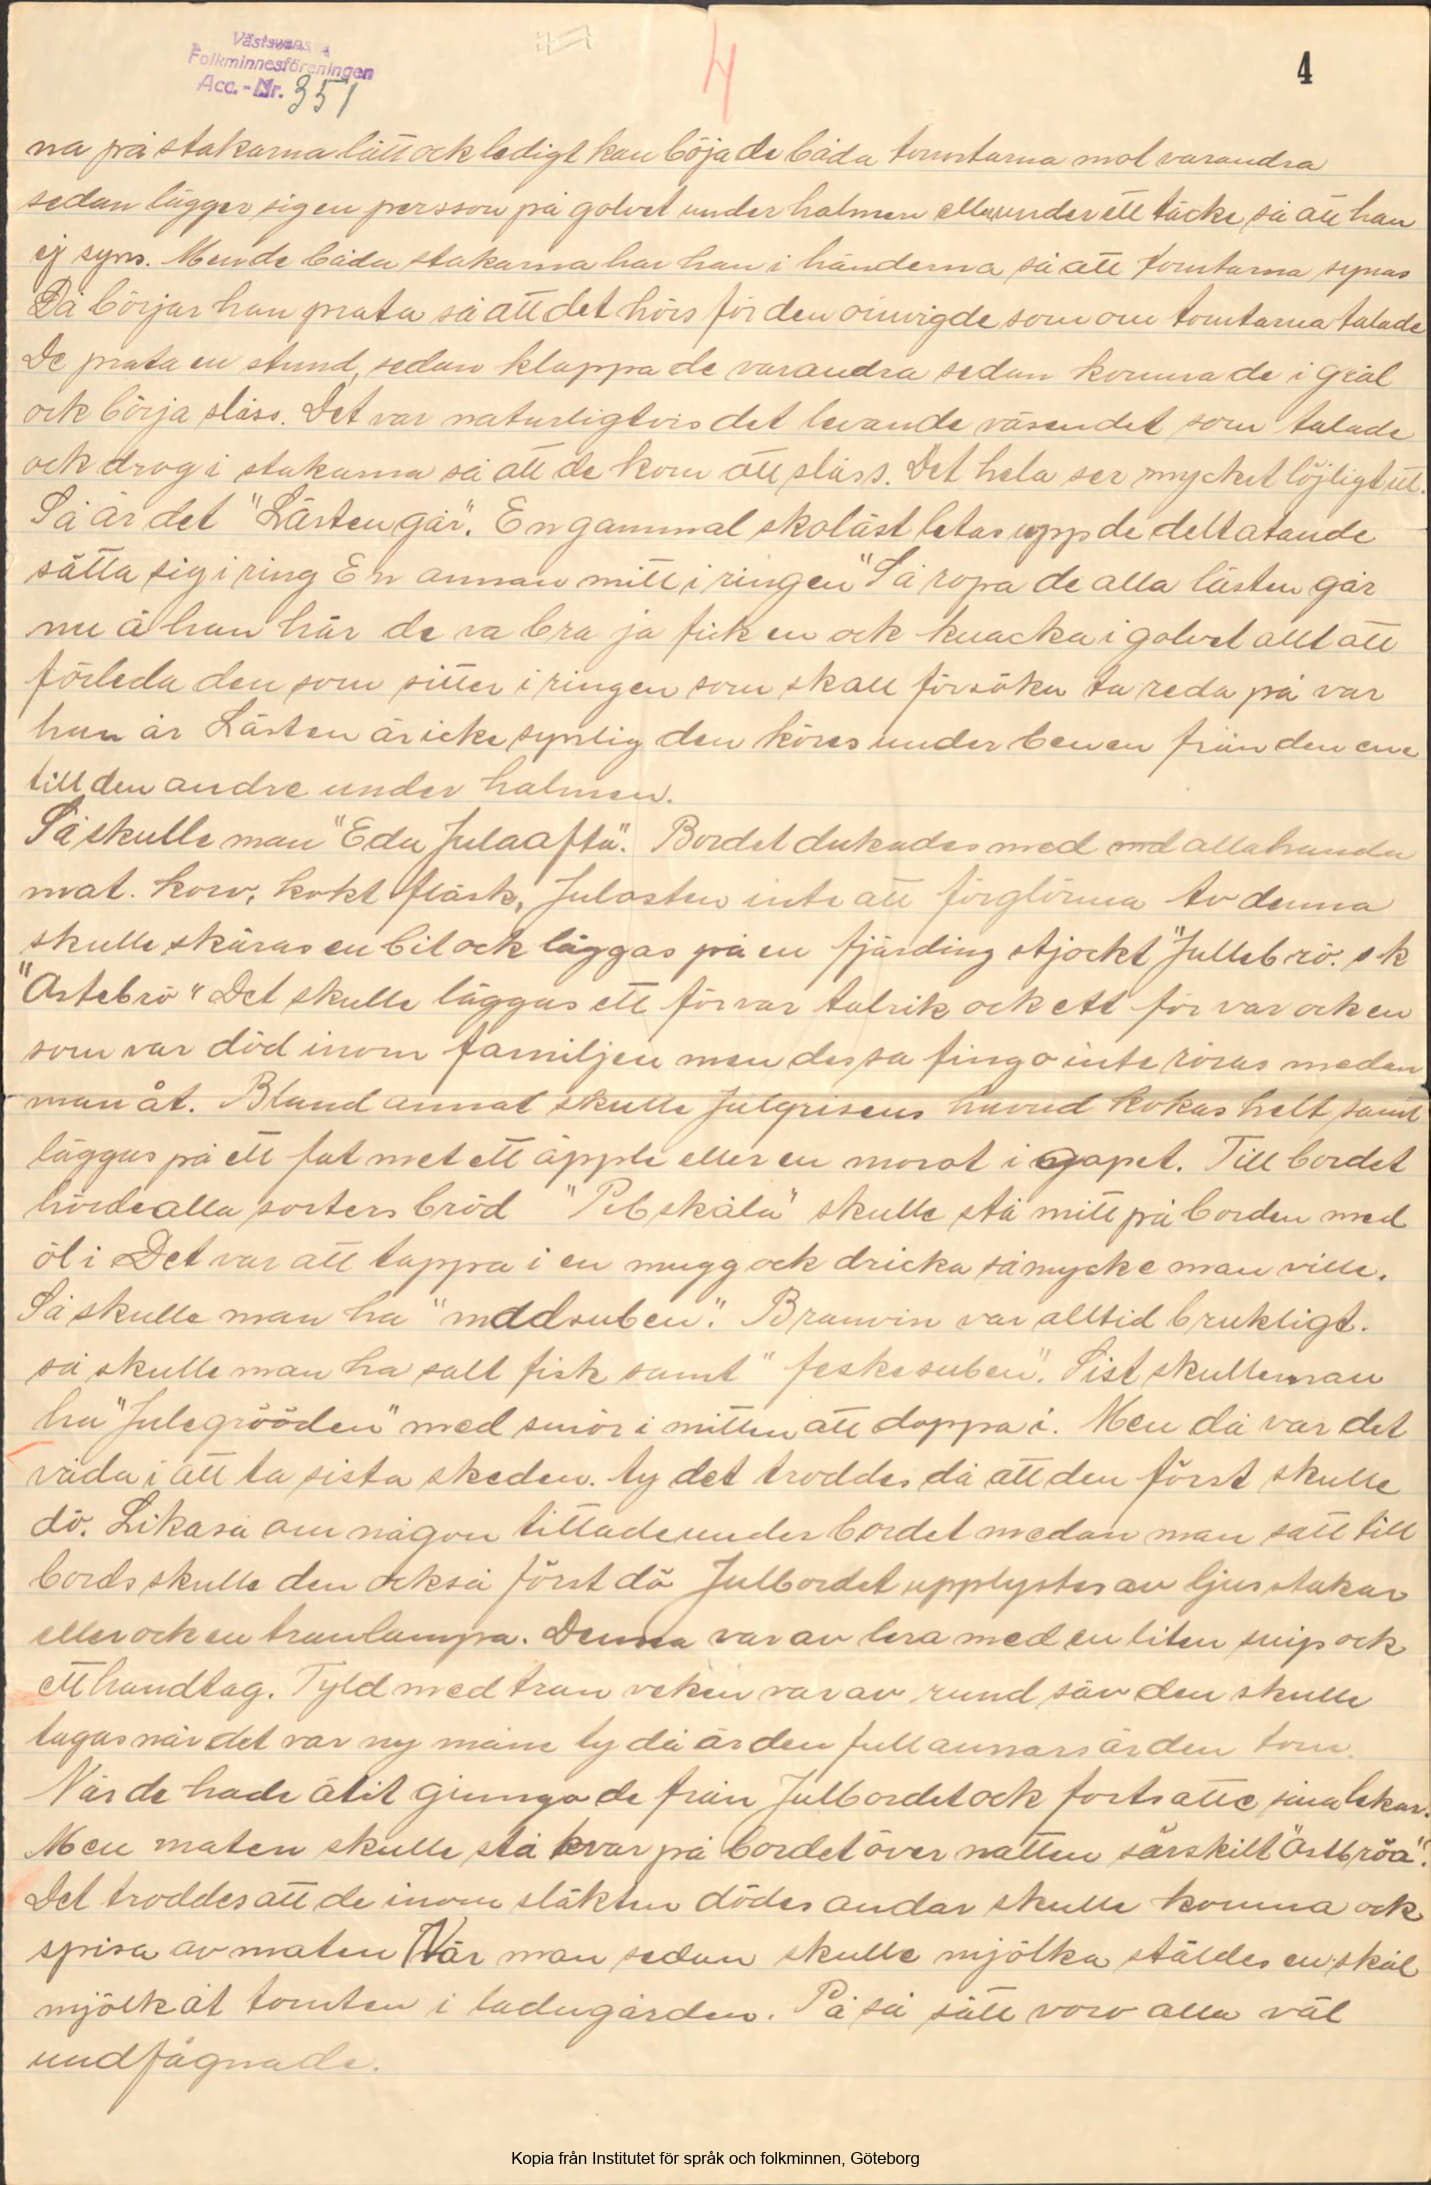 Västsvenska
Folkminnesföreningen
Acc.-Nr. 351
4
4
na på stakarna lätt ock ledigt kan böja de båda tomtarna mot varandra
sedan lägger sig en persson på golvet under halmen eller under ett täcke så att han
ej syns. Men de båda stakarna har han i händerna så att tomtarna synas
Då börjar han prata så att det hörs för den oinvigde som om tomtarna talade
De prata en stund, sedan klappa de varandra sedan komma de i gräl
ock börja slåss. Det var naturligtvis det levande väsendet som talade
ock drog i stakarna så att de kom att slåss. Det hela ser mycket löjligt ut.
Så är det "Lästen går". En gammal skoläst letas upp de deltatande
sätta sig i ring En annan mitt i ringen "Så ropa de alla lästen går
nu ä han här de va bra ja fick en ock knacka i golvet allt att
förleda den som sitter i ringen som skall försöka ta reda på var
han är Lästen är icke synlig den köres under benen från den ene
till den andre under halmen.
Så skulle man "Eda Julaafta". Bordet dukades med md allahanda
mat. korv, kokt fläsk, Julosten inte att förglömma Av denna
skulle skäras en bit ock läggas på en fjärding stjockt "Jullebrö. s k
"Ostebrö" Det skulle läggas ett för var talrik ock ett för var ock en
som var död inom familjen men dessa fingo inte röras medan
man åt. Bland annat skulle Julgrisens huvud kokas helt samt
läggas på ett fat met ett äpple eller en morot i gapet. Till bordet
hörde alla sorters bröd "Pibskåla" skulle stå mitt på borden med
öl i Det var att tappa i en mugg ock dricka så mycke man ville.
Så skulle man ha "mddsuben". Brännvin var alltid brukligt.
så skulle man ha salt fisk samt "feskesuben". Sist skulle man
ha "Julegrööden" med smör i mitten att doppa i. Men då var det
våda i att ta sista skeden. ty det troddes då att den först skulle
dö. Likaså om någon tittade under bordet medan man satt till
bords skulle den också först dö Julbordet upplystes av ljusstakar
eller ock en tranlampa. Denna var av lera med en liten snip ock
ett handtag. Fyld med tran veken var av rund säv den skulle
tagas när det var ny måne ty då är den full annars är den tom.
När de hade ätit gjingo de från Julbordet ock fortsatte sina lekar.
Men maten skulle stå kvar på bordet över natten särskilt "Ostbröa".
Det troddes att de inom släkten dödes andar skulle komma ock
spisa av maten När man sedan skulle mjölka stäldes en skål
mjölk åt tomten i ladugården. På så sätt voro alla väl
undfägnade.
Kopia från Institutet för språk och folkminnen, Göteborg